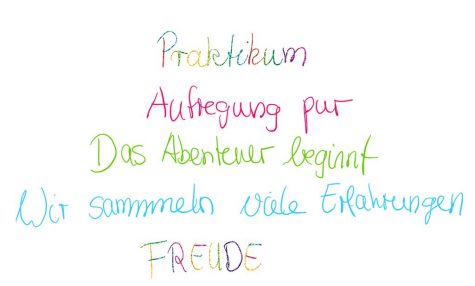 Praktikum
Aufregung pur
Das Abenteuer beginnt
Wir sammmeln viele Erfahrungen
FREUDE